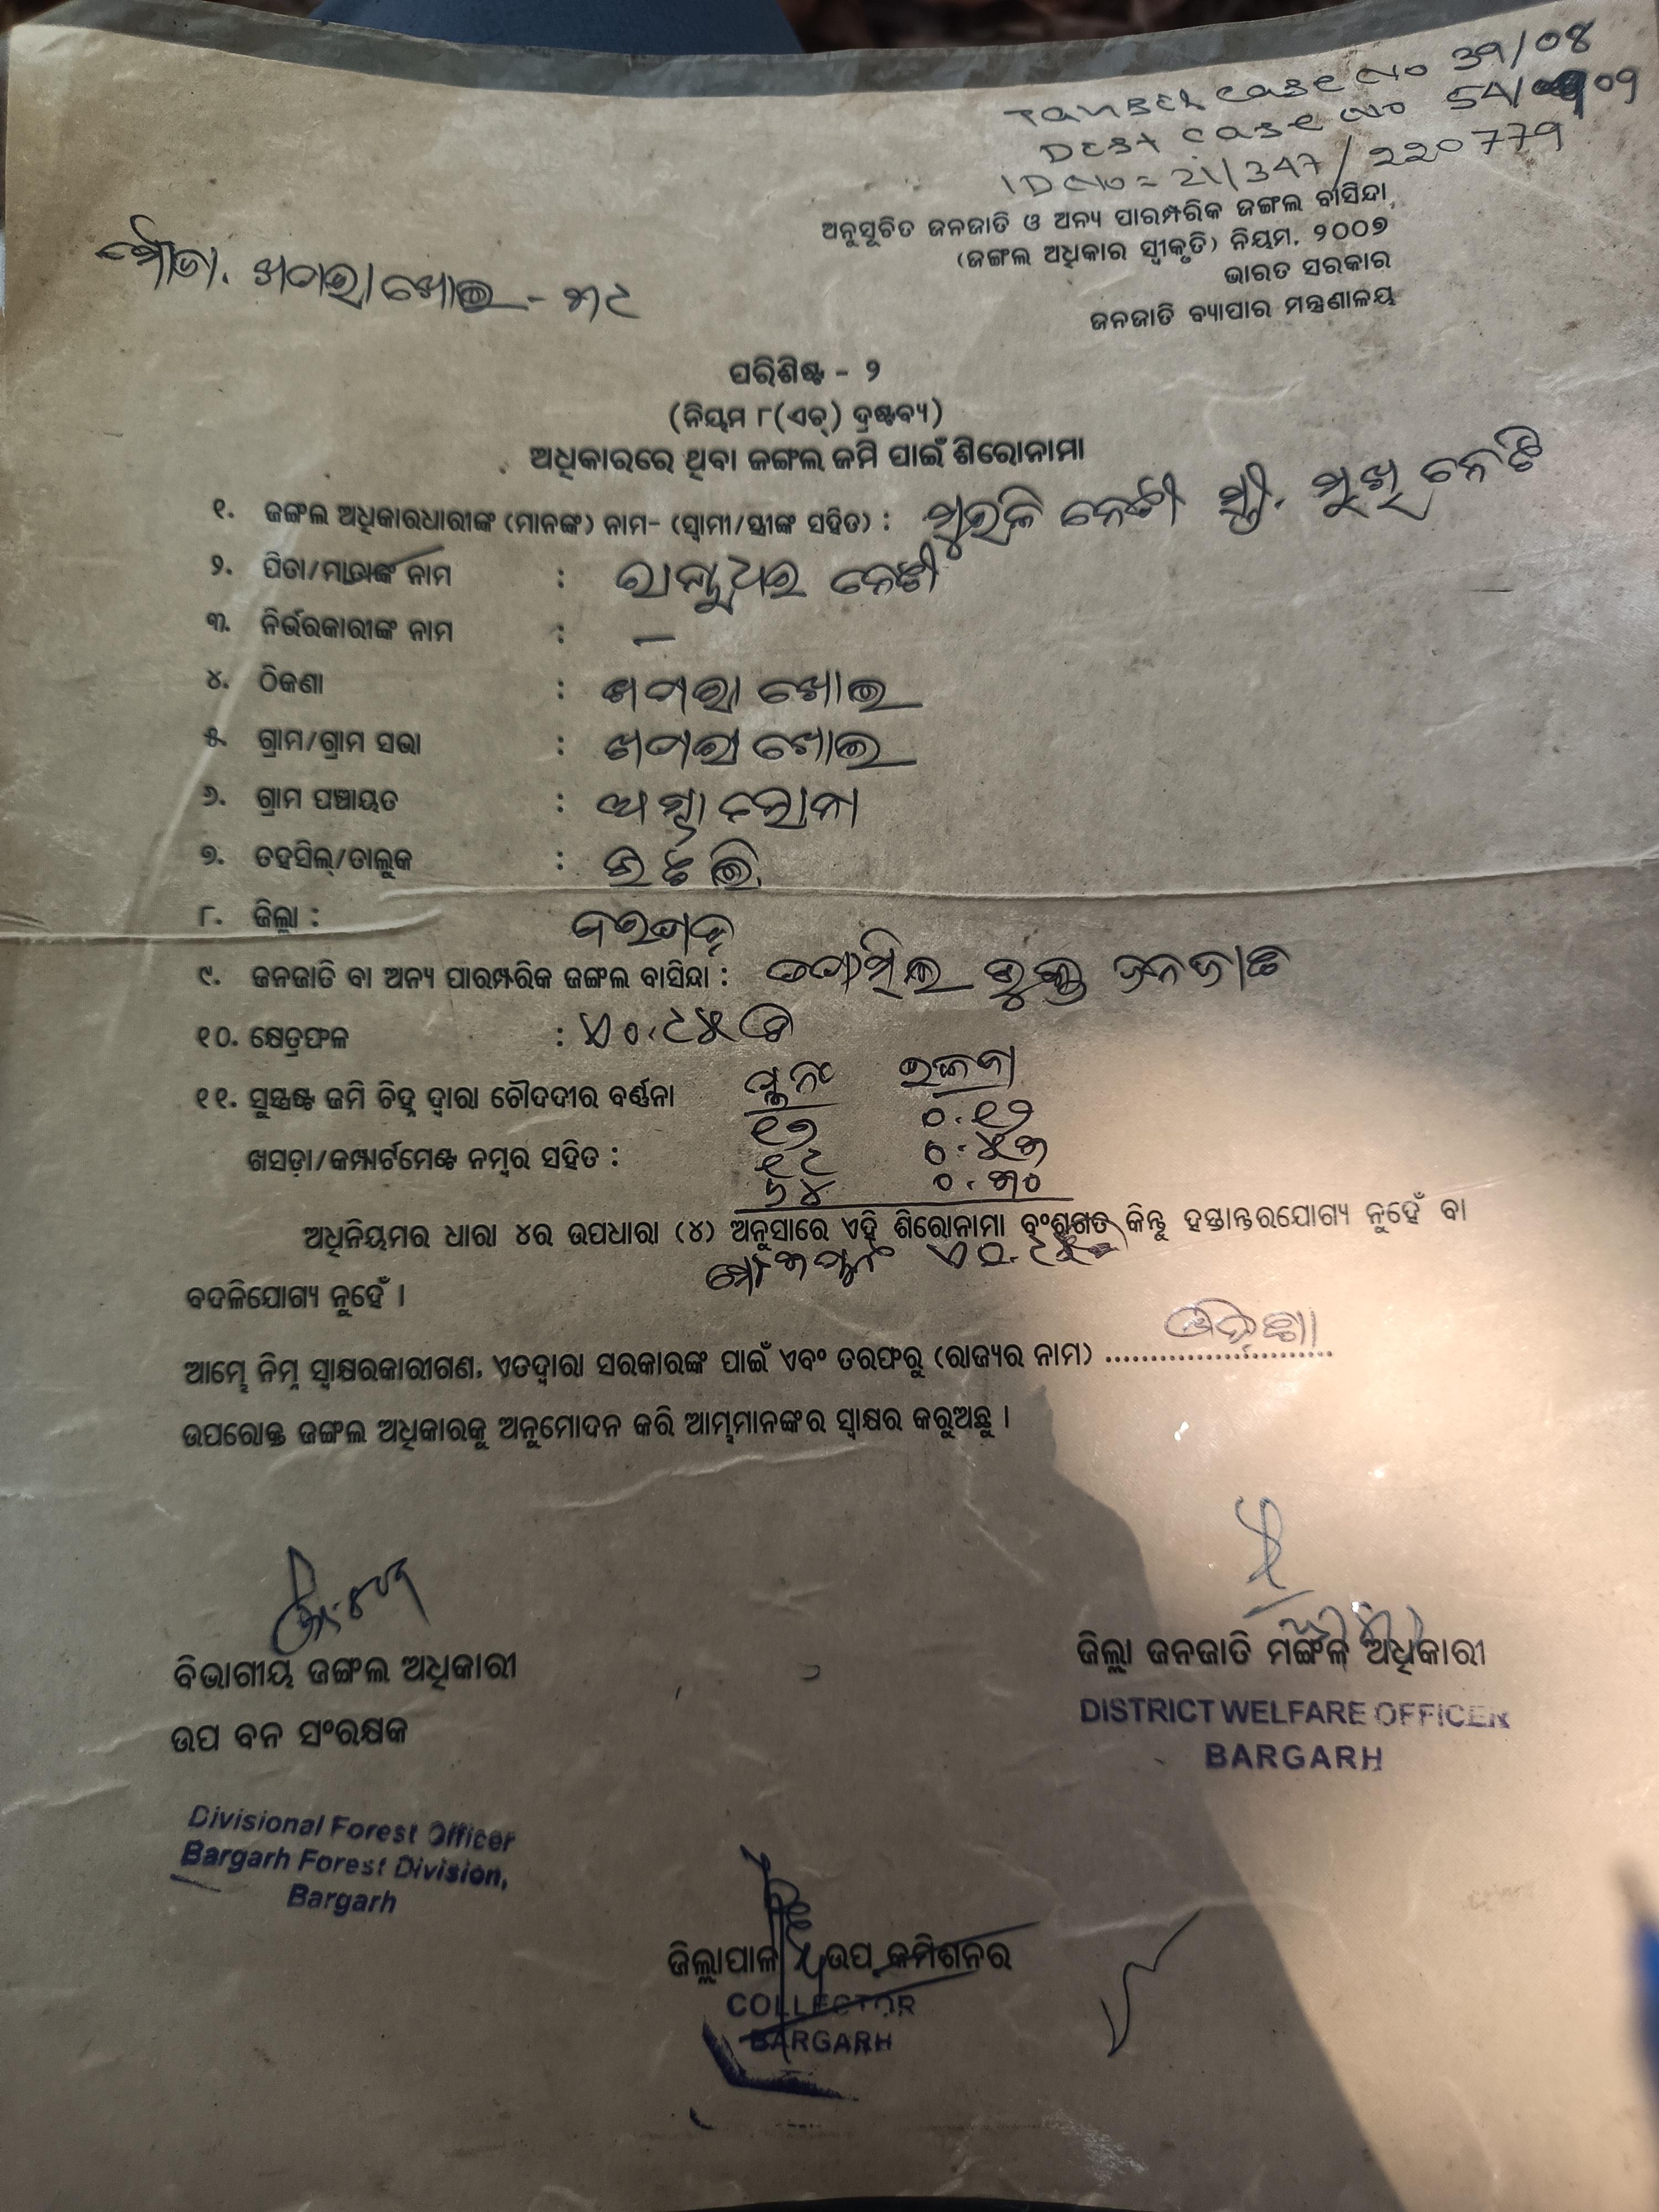 Case No 39/08
Dist Case No 54/ 09
ID No = 21/347/220779
ଅନୁସୂଚିତ ଜନଜାତି ଓ ଅନ୍ୟ ପାରମ୍ପରିକ ଜଙ୍ଗଲ ବାସିନ୍ଦା
(ଜଙ୍ଗଲ ଅଧିକାର ସ୍ୱୀକୃତି) ନିୟମ, ୨୦୦୭
ଭାରତ ସରକାର
ଜନଜାତି ବ୍ୟାପାର ମନ୍ତ୍ରଣାଳୟ
ମୌଜା. ଖମରା ଖୋଇ - ୩୯
ପରିଶିଷ୍ଟ - ୨
(ନିୟମ ୮(ଏଚ୍) ଦ୍ରଷ୍ଟବ୍ୟ)
ଅଧିକାରରେ ଥିବା ଜଙ୍ଗଲ ଜମି ପାଇଁ ଶିରୋନାମା
୧. ଜଙ୍ଗଲ ଅଧିକାରଧାରୀଙ୍କ (ମାନଙ୍କ) ନାମ- (ସ୍ୱାମୀ/ସ୍ତ୍ରୀଙ୍କ ସହିତ) : ମୁରଳି ନେଟୀ ସ୍ତ୍ରୀ.
୨. ପିତା/ମାତାଙ୍କ ନାମ : ଧର ନେଟୀ
୩. ନିର୍ଭରକାରୀଙ୍କ ନାମ : —
୪. ଠିକଣା : ଖମରା ଖୋଇ
୫. ଗ୍ରାମ/ଗ୍ରାମ ସଭା : ଖମରା ଖୋଇ
୬. ଗ୍ରାମ ପଞ୍ଚାୟତ :
୭. ତହସିଲ୍/ତାଲୁକ : ଭଟଲି
୮. ଜିଲ୍ଲା : ବରଗଡ଼
୯. ଜନଜାତି ବା ଅନ୍ୟ ପାରମ୍ପରିକ ଜଙ୍ଗଲ ବାସିନ୍ଦା : ଜନଜାତି
୧୦. କ୍ଷେତ୍ରଫଳ : ଏ ୦.୯୫ ଡି
୧୧. ସୁସ୍ପଷ୍ଟ ଜମି ଚିହ୍ନ ଦ୍ୱାରା ଚୌଦଦୀର ବର୍ଣ୍ଣନା ପ୍ଲଟ ନଂ ରକବା
୧୭ ୦.୧୨
ଖସଡ଼ା/କମ୍ପାର୍ଟମେଣ୍ଟ ନମ୍ବର ସହିତ : ୧୯ ୦.୫୩
୬୪ ୦.୩୦
ଅଧିନିୟମର ଧାରା ୪ର ଉପଧାରା (୪) ଅନୁସାରେ ଏହି ଶିରୋନାମା ବଂଶଗତ କିନ୍ତୁ ହସ୍ତାନ୍ତରଯୋଗ୍ୟ ନୁହେଁ ବା
ମୋଟ ୩ ପ୍ଲଟ ଏ ୦.୯୫
ବଦଳିଯୋଗ୍ୟ ନୁହେଁ ।
ଆମ୍ଭେ ନିମ୍ନ ସ୍ୱାକ୍ଷରକାରୀଗଣ, ଏତଦ୍ୱାରା ସରକାରଙ୍କ ପାଇଁ ଏବଂ ତରଫରୁ (ରାଜ୍ୟର ନାମ) ଓଡ଼ିଶା
ଉପରୋକ୍ତ ଜଙ୍ଗଲ ଅଧିକାରକୁ ଅନୁମୋଦନ କରି ଆମ୍ଭମାନଙ୍କର ସ୍ୱାକ୍ଷର କରୁଅଛୁ ।
ବିଭାଗୀୟ ଜଙ୍ଗଲ ଅଧିକାରୀ
ଉପ ବନ ସଂରକ୍ଷକ
Divisional Forest Officer
Bargarh Forest Division,
Bargarh
ଜିଲ୍ଲା ଜନଜାତି ମଙ୍ଗଳ ଅଧିକାରୀ
DISTRICT WELFARE OFFICER
BARGARH
ଜିଲ୍ଲାପାଳ / ଉପ କମିଶନର
COLLECTOR
BARGARH